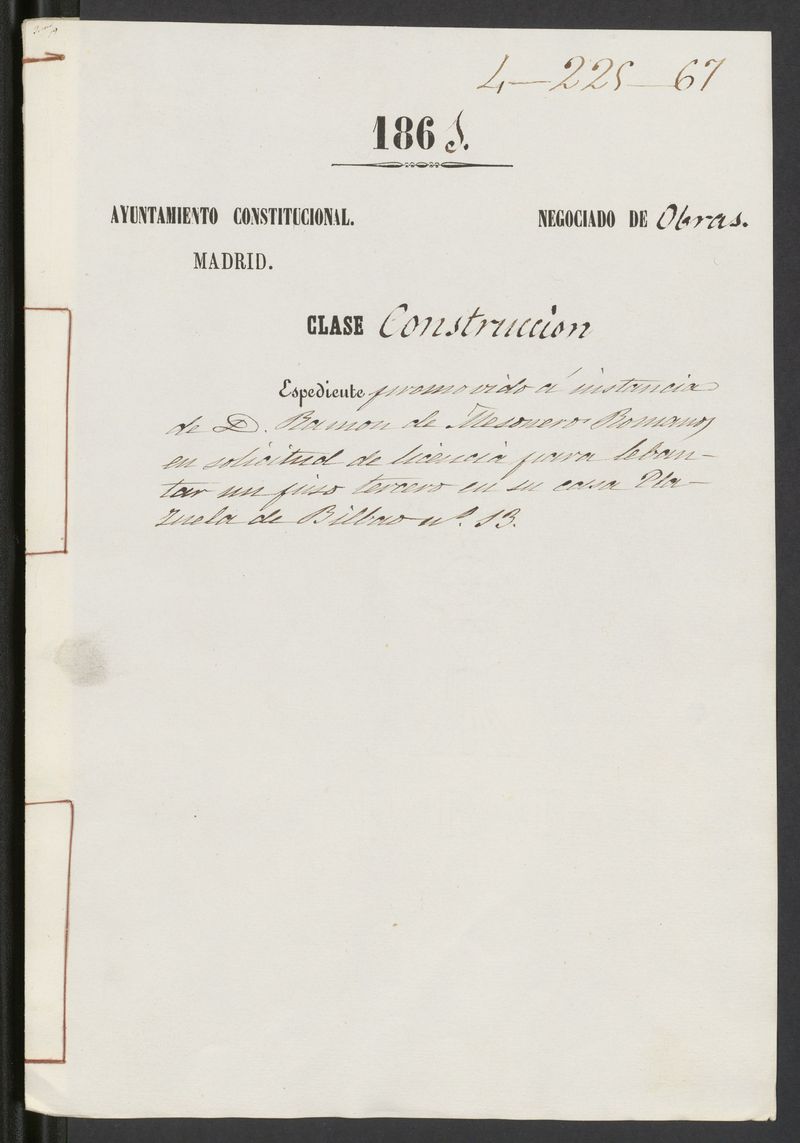 4-225-67
1865.
AYUNTAMIENTO CONSTITUCIONAL.
MADRID.
NEGOCIADO DE Obras.
CLASE Construccion
Espediente promovido á instancia
de D. Ramon de Mesonero Romanos
en solicitud de licencia para leban-
tar un piso tercero en su casa Pla-
zuela de Bilbao nº. 13.